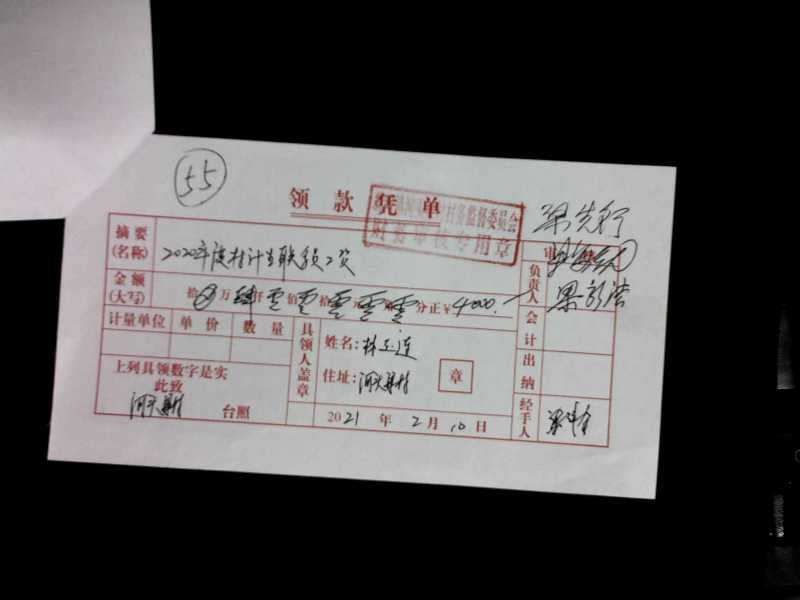 55
领款凭单
村务监督委员会
财务审核专用章
摘要
(名称)
2020年度村计生联络员工资
金额
(大写)
拾 万 肆仟 零佰 零拾 零元 零角 零分 正 ¥ 4000.
计量单位 单价 数量
上列具领数字是实
此致
河头村 台照
具领人盖章
姓名: 林玉连
住址: 河头村
章
2021 年 2 月 10 日
负责人
会计
出纳
经手人